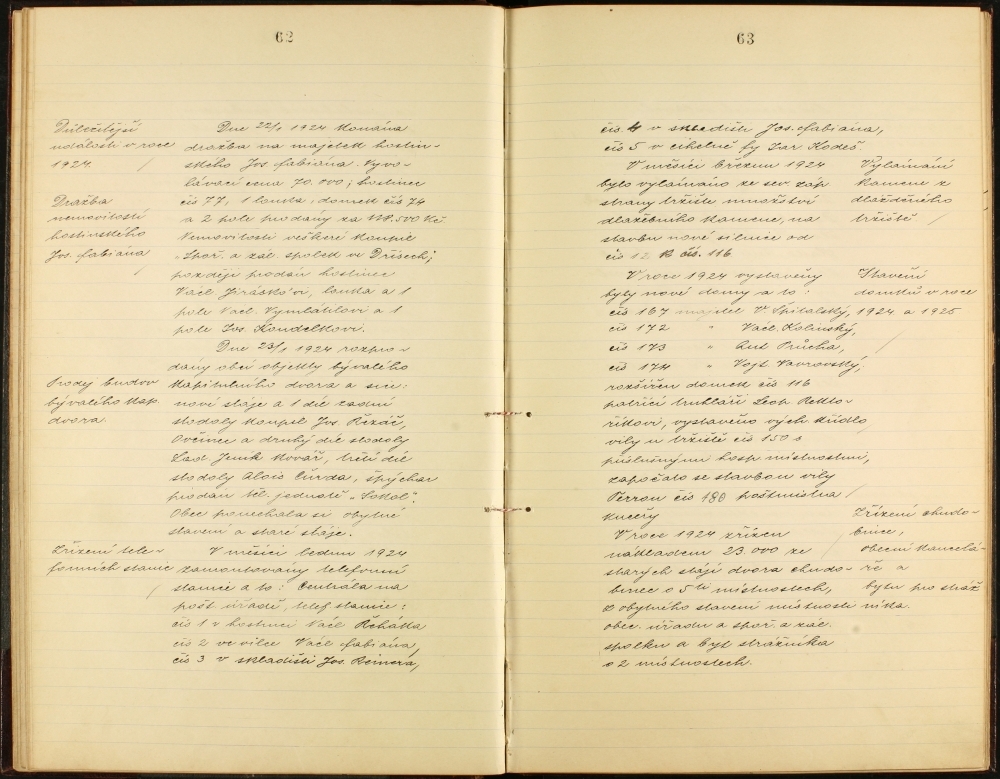 62
Důležitější
události v roce
1924.
Dne 22/1 1924 konána
dražba na majetek hostin-
ského Jos. Fabiána. Vyvo-
lávací cena 70.000; hostinec
čís 77, 1 louka, domek čís 74
a 2 pole prodány za 118.500 Kč
Dražba
nemovitostí
hostinského
Jos. Fabiána
Nemovitosti veškeré koupil
„Spoř. a zál. spolek ve Dřísech“;
později prodán hostinec
Václ. Jiráskovi, louka a 1
pole Václ. Vymlátilovi a 1
pole Jos. Kondelkovi.
Dne 23/1 1924 rozpro-
dány obcí objekty bývalého
Prodej budov
bývalého kap.
dvora
kapitulního dvora a sice:
nové stáje a 1 díl zadní
stodoly koupil Jos. Řízář,
Ovčinec a druhý díl stodoly
Lad. Jeník kovář, třetí díl
stodoly Alois Čurda, špýchar
prodán těl. jednotě „Sokol“.
Obec ponechala si obytné
stavení a staré stáje.
Zřízení tele-
fonních stanic
V měsíci lednu 1924
zamontovány telefonní
stanice a to: Centrála na
pošt. úřadě, telef. stanice:
čís 1 v hostinci Václ. Řeháka
čís 2 ve vilce Václ. Fabiána,
čís 3 v skladišti Jos. Reinera,
63
čís. 4 v skladišti Jos. Fabiána,
čís 5 v cihelně fy Jar. Kodeš.
V měsíci březnu 1924
bylo vylámáno ze sev. záp
strany tržiště množství
dlažebního kamene, na
stavbu nové silnice od
čís 12 k čís. 116
Vylámání
kamene z
dlážděného
tržiště
V roce 1924 vystavěny
byly nové domy a to:
čís 167 majitel V. Špitalský,
čís 172 " Václ. Kolínský,
čís 173 " Ant Průcha,
čís 174 " Vojt. Vavrovský,
Stavění
domků v roce
1924 a 1925
rozšířen domek čís 116
patřící truhláři Leop. Rekto-
říkovi, vystavěno vých. křídlo
vily u tržiště čís 150 s
příslušnými hosp. místnostmi,
započato se stavbou vily
Perron čís 180 poštmistra
Kučery
V roce 1924 zřízen
nákladem 23.000 ze
starých stájí dvora chudo-
binec o 5ti místnostech,
z obytného stavení místnosti
obec. úřadu a spoř. a zál.
spolku a byt strážníka
o 2 místnostech.
Zřízení chudo-
bince,
obecní kancelá-
ře a
bytu pro stráž
níka.